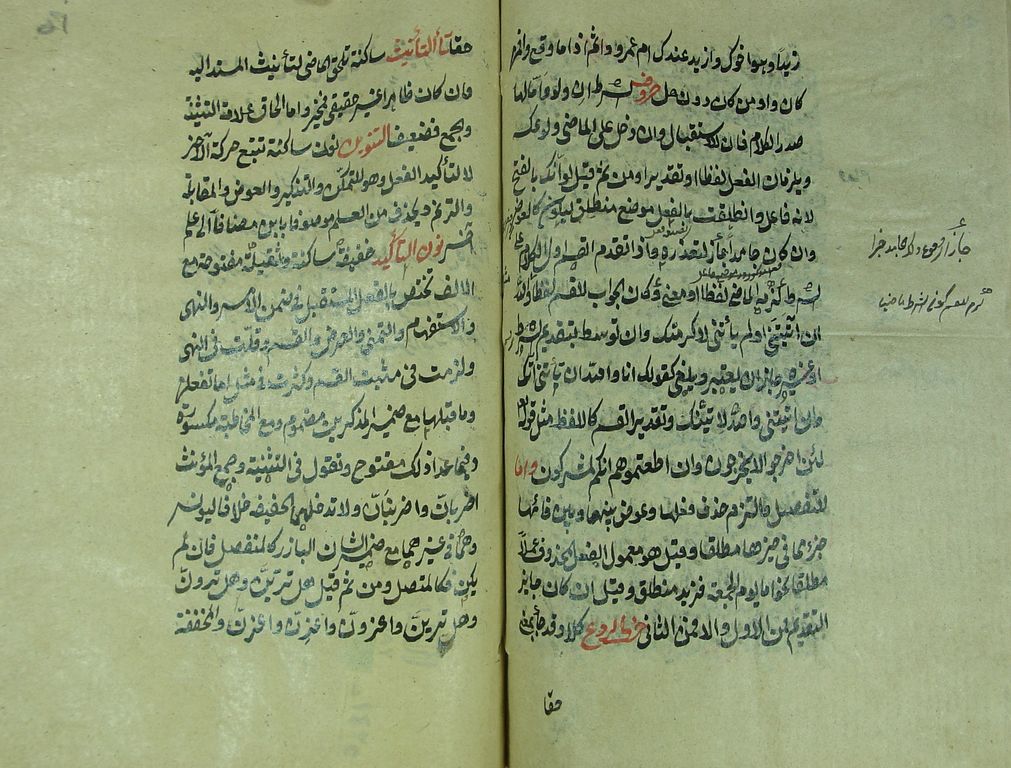 زيدًا وهوا قوك وازيد عندك ام عمرو واثم اذا ما وقع وافمن
كان واومن كان دون هل حروف الشرط ان ولو واما لها
صدر الكلام فان للاستقبال وان دخل على الماضي ولو عكسه
ويلزمان الفعل لفظا او تقديرا ومن ثم قيل لو انك بالفتح
لانه فاعل وانطلقت بالفعل موضع منطلق ليكون كالعوض
وان كان جامدا جاز لتعذره واذا تقدم القسم اول الكلام على
الشرط لزمه الماضي لفظا او معنى وكان الجواب للقسم لفظا والله
ان اتيتني او لم يأتني لاكرمتك وان توسط بتقديم الشرط
او غيره جاز ان يعتبر ويلغى كقولك انا والله ان يأتني آتك
وان اتيتني والله لاتينك وتقدير القسم كاللفظ مثل قوله
لئن اخرجوا لا يخرجون وان اطعتموهم انكم لمشركون واما
للتفصيل والتزم حذف فعلها وعوض بينها وبين فائها
جزء مما في حيزها مطلقا وقيل هو معمول الفعل المحذوف مثلا
مطلقا نحو اما يوم الجمعة فزيد منطلق وقيل ان كان جايز
التقديم فمن الاول والا فمن الثاني حرف الردع كلا وقد جاء بمعنى
حقا
جاز
حقا تاء التأنيث ساكنة تلحق الماضي لتأنيث المسند اليه
فان كان ظاهرا غير حقيقي فمخير واما الحاق علامة التثنية
وجمع فضعيف التنوين نون ساكنة تتبع حركة الآخر
لا لتأكيد الفعل وهو للتمكن والتنكير والعوض والمقابلة
والترنم ويحذف من العلم موصوفا بابن مضافا الى علم
آخر نون التأكيد خفيفة ساكنة وثقيلة مفتوحة مع
الالف تختص بالفعل المستقبل في ضمن الامر والنهي
والاستفهام والتمني والعرض والقسم وقلت في النهي
ولزمت في مثبت القسم وكثرت في مثل اما تفعلن
وما قبلها مع ضمير المذكرين مضموم ومع المخاطبة مكسورة
وفيما عدا ذلك مفتوح وتقول في التثنية وجمع المؤنث
اضربان واضربنان ولا تدخلهما الخفيفة خلافا ليونس
وهما في غيرهما مع ضمير الشان البارز كالمنفصل فان لم
يكن فكالمتصل ومن ثم قيل هل ترين وهل ترون
وهل ترين واغزون واغزن واغزن والمخففة